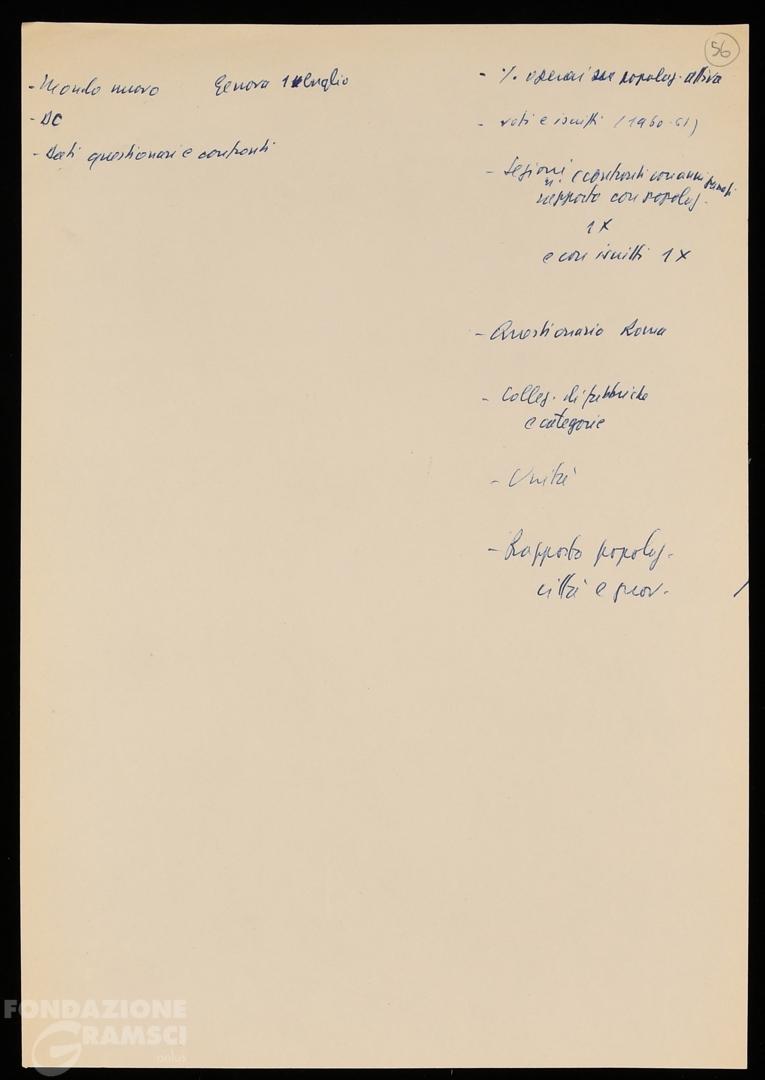 56
- Mondo nuovo Genova 1 luglio
- DC
- Dati questionari e confronti
- % operai su popolaz. attiva
- voti e iscritti (1960-61)
- Sezioni e confronti con anni passati
n.
rapporto con popolaz.
1 X
e con iscritti 1 X
- Questionario Roma
- Colleg. di fabbriche
e categorie
- Unità
- Rapporto popolaz.
città e prov.
FONDAZIONE
GRAMSCI
onlus